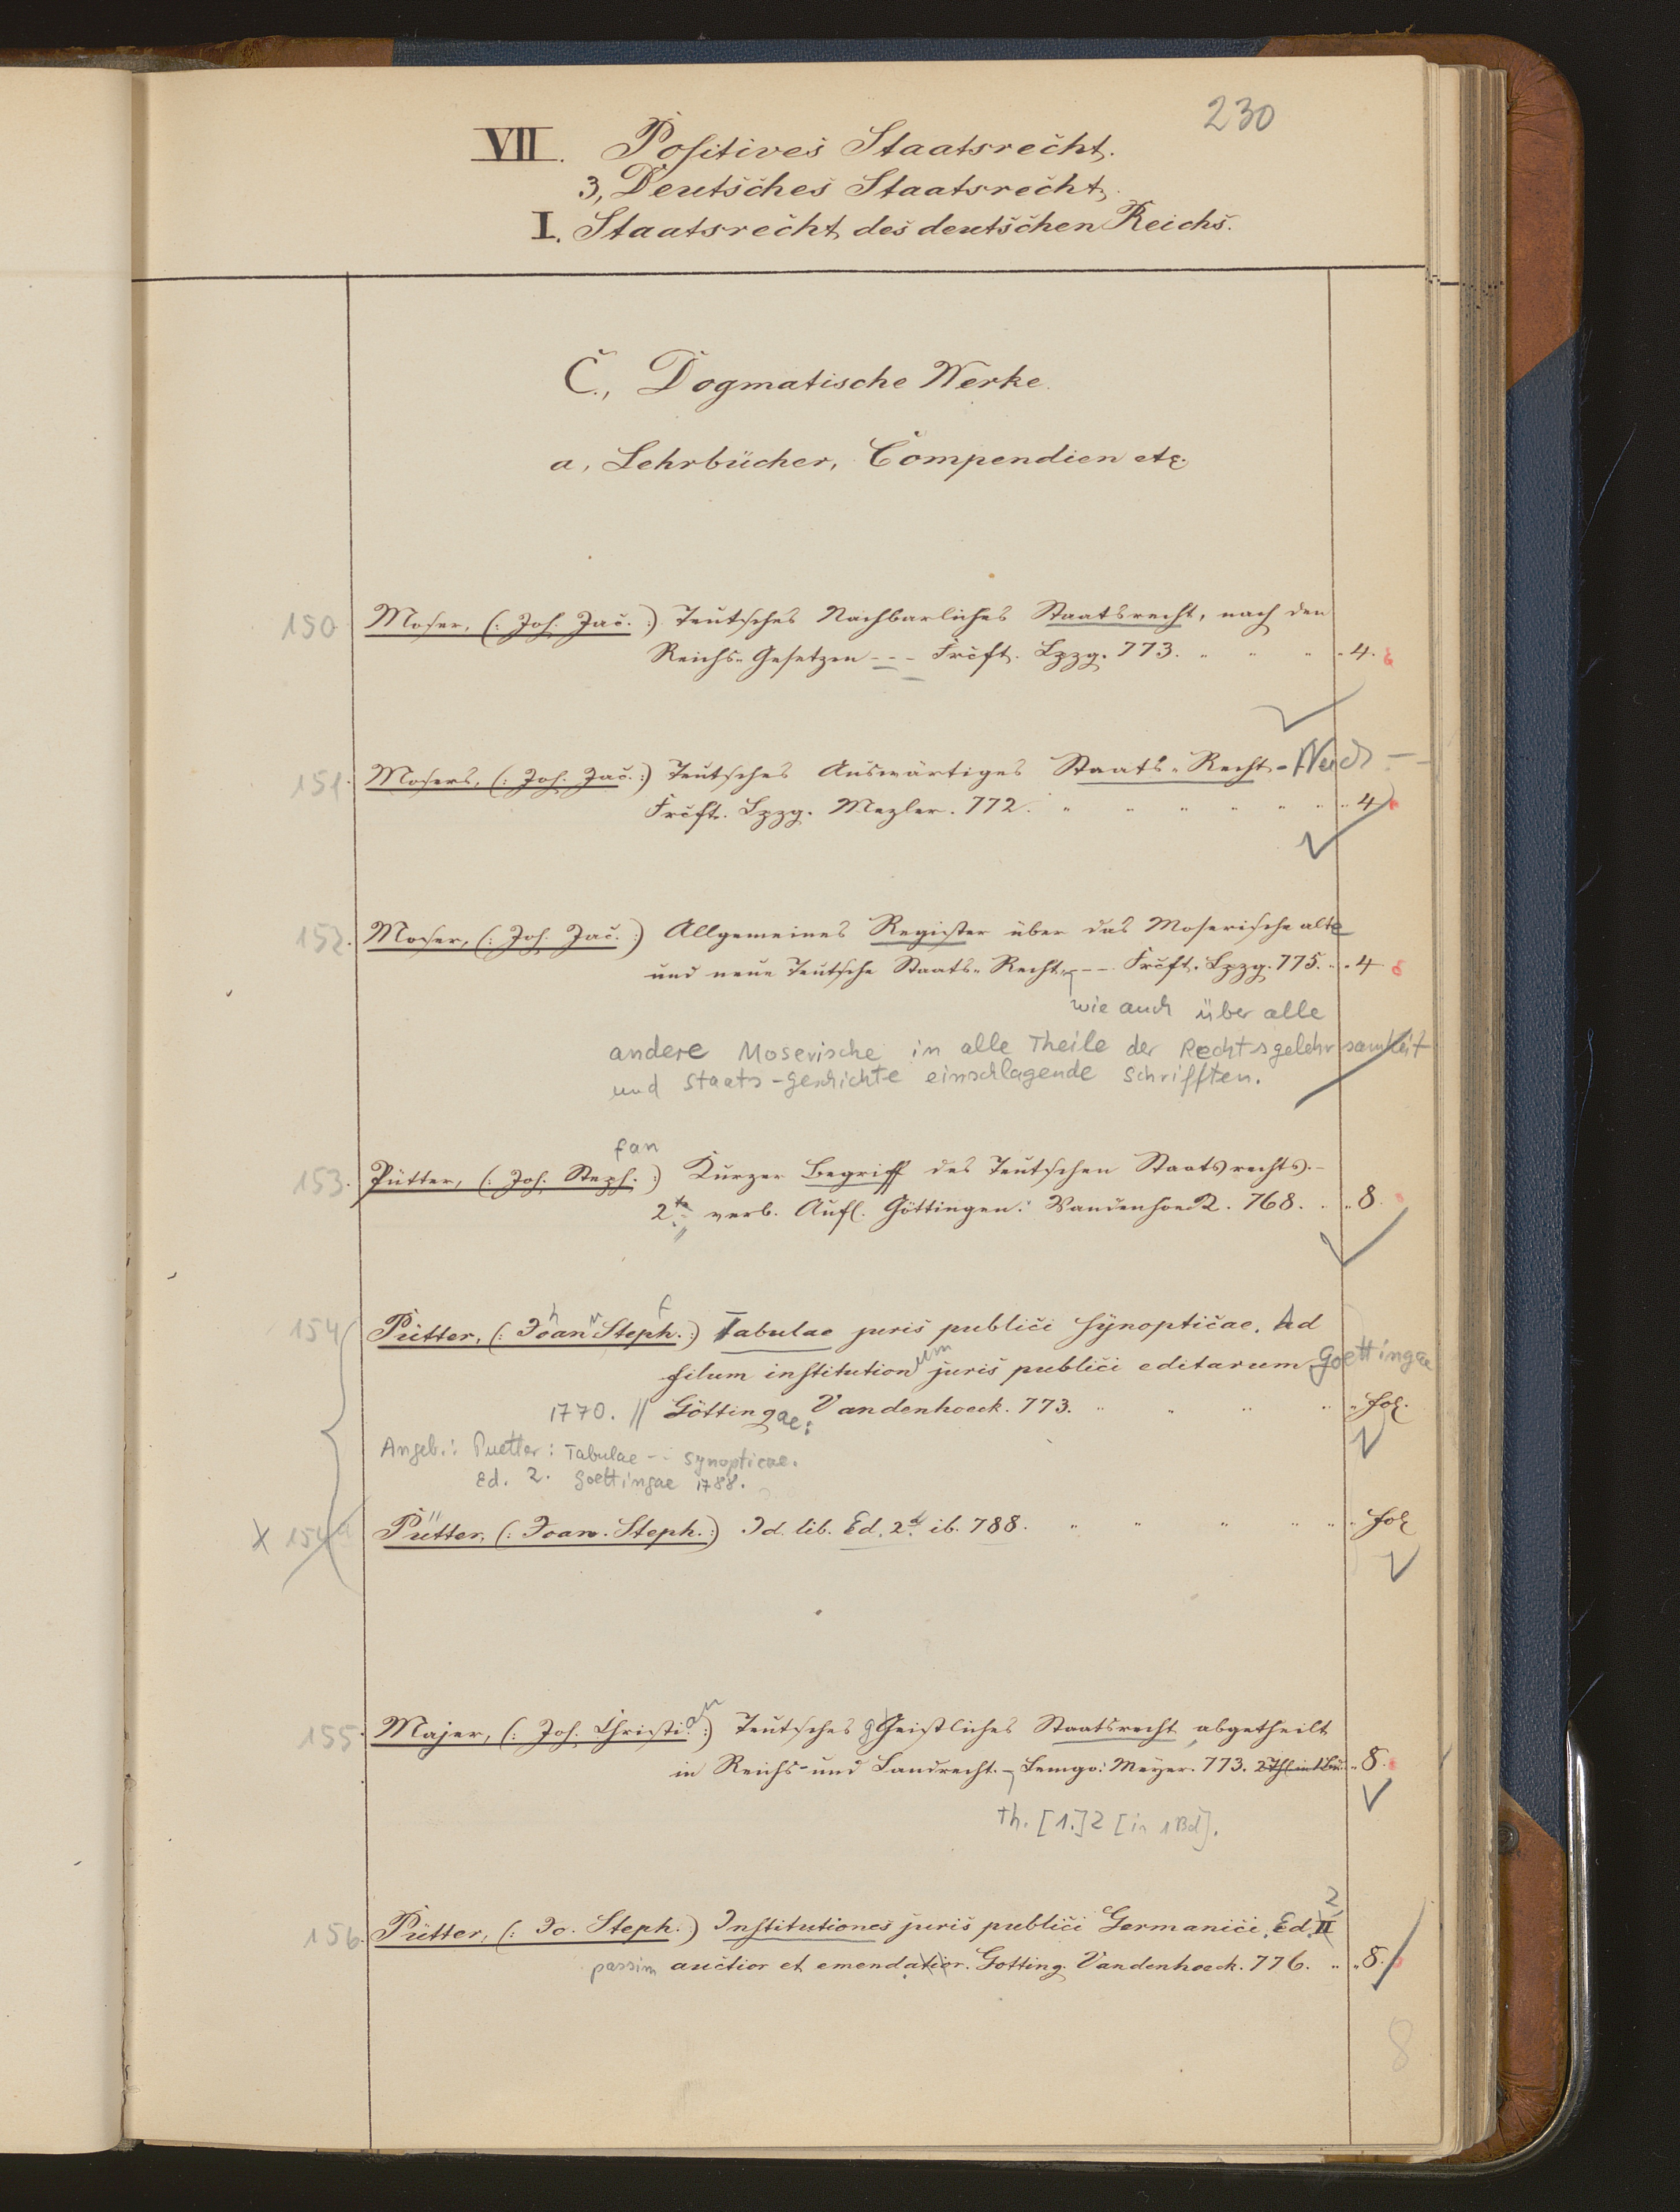 230
VII. Positives Staatsrecht.
3, Deutsches Staatsrecht.
I. Staatsrecht des deutschen Reichs.
C., Dogmatische Werke.
a, Lehrbücher, Compendien etc.
150 Moser, (: Joh. Jac. :) Teutsches Nachbarliches Staatsrecht, nach den
Reichs-Gesetzen --- Frcft. Lpzg. 773. " " " " 4.
151. Mosers, (: Joh. Jac. :) Teutsches Auswärtiges Staats-Recht -
Frcft. Lpzg. Mezler. 772. " " " " " " " 4
152. Moser, (: Joh. Jac. :) Allgemeines Register über das Moserische alte
und neue Teutsche Staats-Recht, --- Frcft. Lpzg. 775. " " 4
wie auch über alle
andere Moserische in alle Theile der Rechtsgelehrsamkeit
und Staats-Geschichte einschlagende Schrifften.
fan
153. Pütter, (: Joh. Steph. :) Kurzer Begriff des Teutschen Staatsrechts. -
2te verb. Aufl. Göttingen: Vandenhoeck. 768. " " 8.
154 Pütter, (: Joan Steph. :) Tabulae juris publici synopticae. Ad
filum institutionum juris publici editarum. Goettingae
1770. // Göttingae: Vandenhoeck. 773. " " " " fol.
Angeb.: Puetter: Tabulae -- synopticae.
Ed. 2. Goettingae 1788.
X 154a Pütter, (: Joan. Steph. :) Id. lib. Ed. 2d. ib. 788. " " " " " " fol
155. Majer, (: Joh. Christian :) Teutsches Geistliches Staatsrecht, abgetheilt
in Reichs- und Landrecht. - Lemgo: Meyer. 773. 2 Thl in 1 Bd. " 8.
Th. [1.] 2 [in 1 Bd].
2
156. Pütter, (: Jo. Steph. :) Institutiones juris publici Germanici. Ed. II
passim auctior et emendatior. Gotting. Vandenhoeck. 776. " " 8.
8